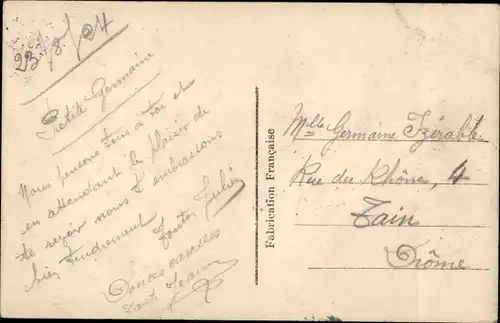 23/8/24
Petite Germaine
Nous pensons tous à toi et
en attendant le plaisir de
te revoir nous t'embrassons
bien tendrement Tonton Julien
Douces caresses
Tante Jeanne
Fabrication Française
Mlle Germaine Izérable
Rue du Rhône, 4
Tain
Drôme